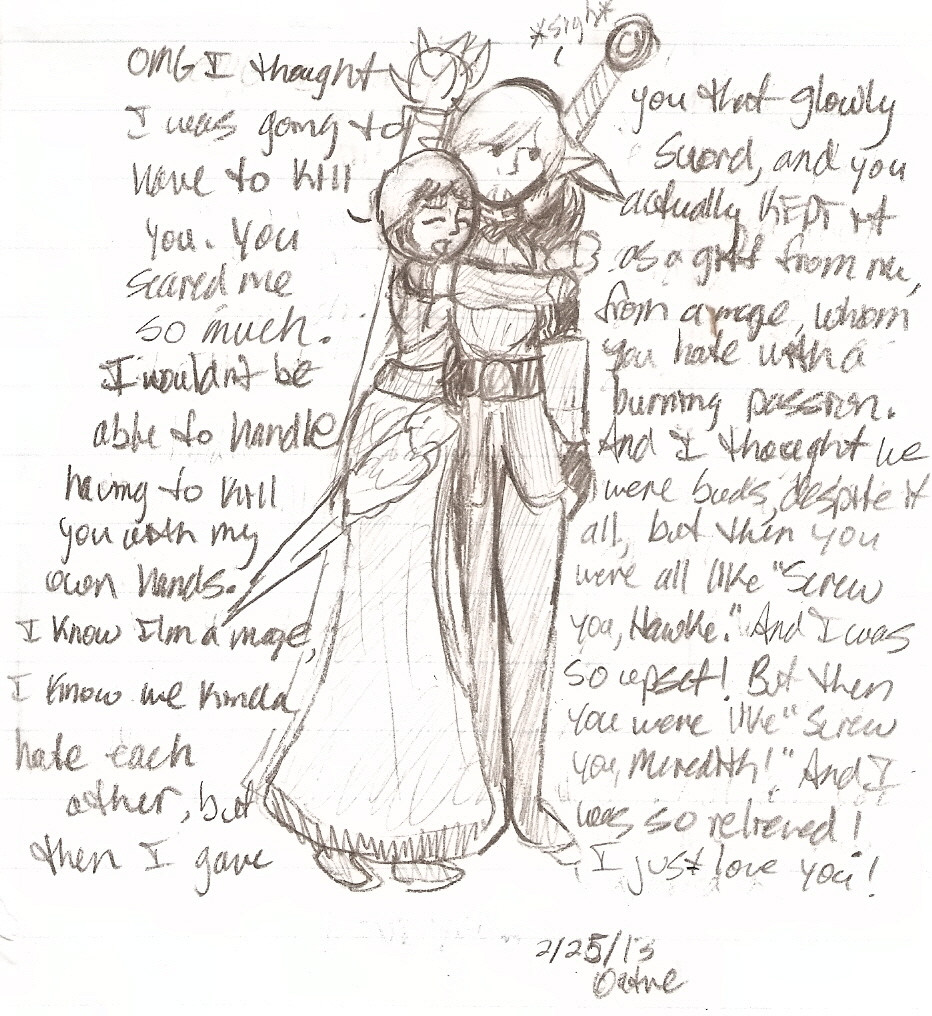 *sigh*
OMG I thought
I was going to
have to kill
you. You
scared me
so much.
I wouldn't be
able to handle
having to kill
you with my
own hands.
I know I'm a mage,
I know we kinda
hate each
other, but
then I gave
you that glowly
sword, and you
actually KEPT it
as a gift from me,
from a mage, whom
you hate with a
burning passion.
And I thought we
were buds, despite it
all, but then you
were all like "Screw
you, Hawke." And I was
so upset! But then
you were like "Screw
you, Meredith!" And I
was so relieved!
I just love you!
2/25/13